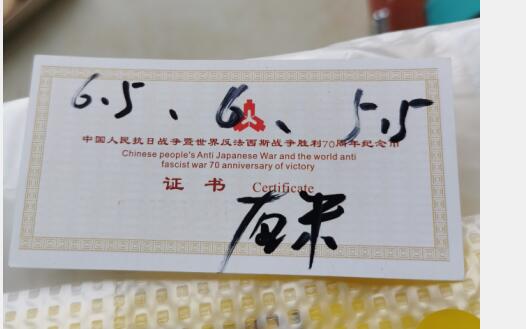 6.5、6、5.5
中国人民抗日战争暨世界反法西斯战争胜利70周年纪念币
Chinese people's Anti Japanese War and the world anti
fascist war 70 anniversary of victory
证书 Certificate
厘米